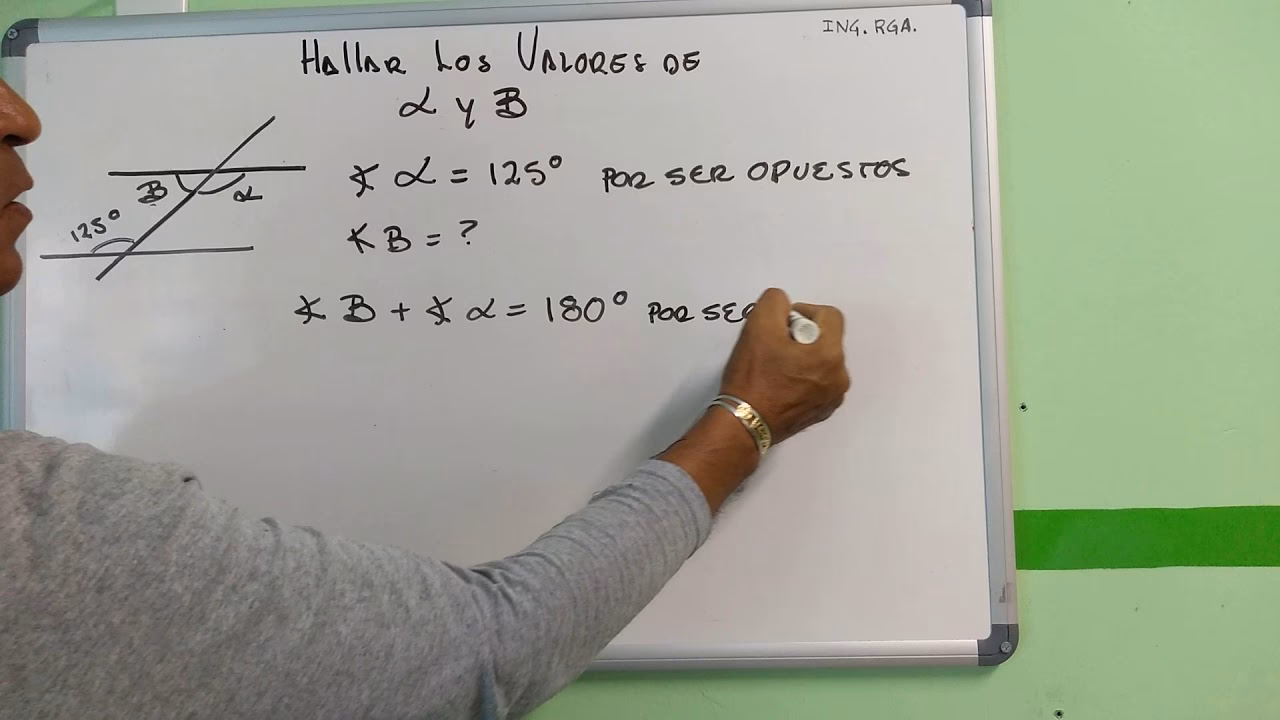 ING. RGA.
HALLAR LOS VALORES DE
α y B
B α
125°
∡ α = 125° POR SER OPUESTOS
∡ B = ?
∡ B + ∡ α = 180° POR SER